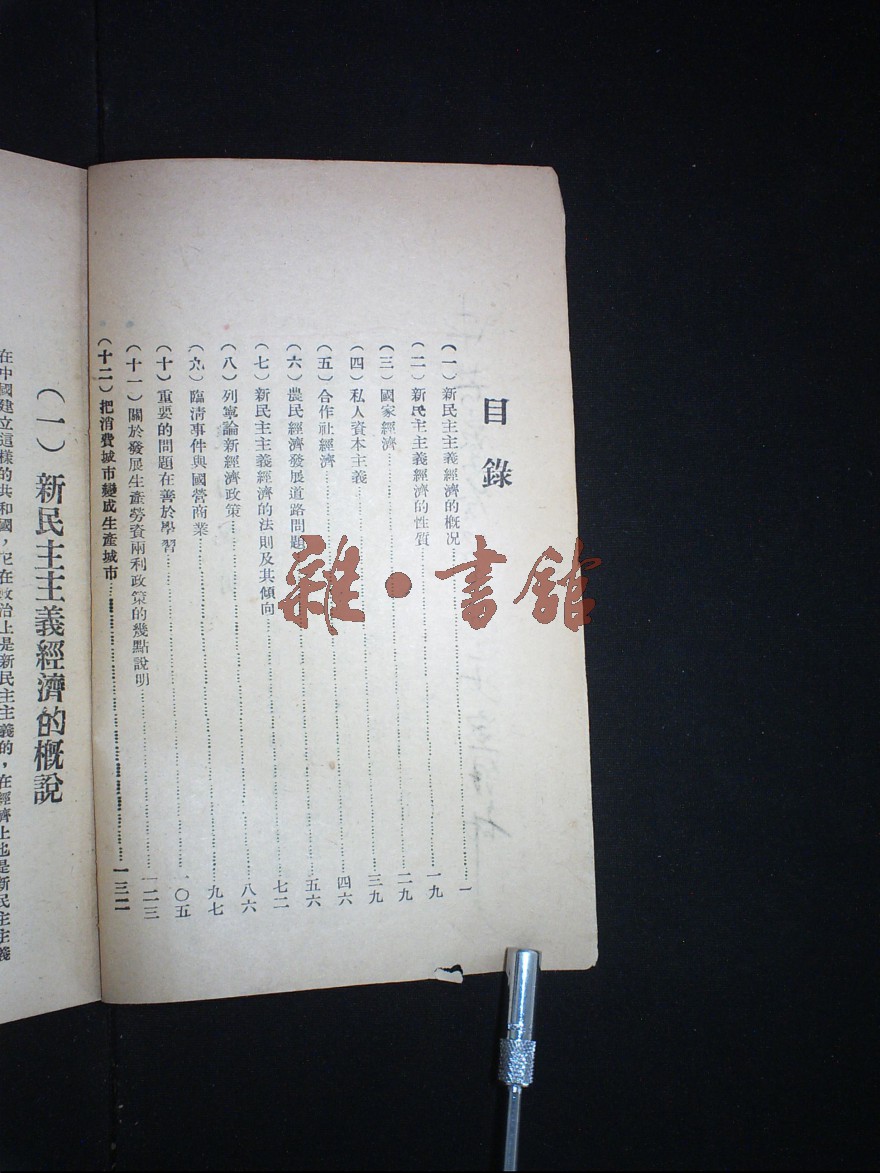 目錄
(一)新民主主義經濟的概況……一
(二)新民主主義經濟的性質……一九
(三)國家經濟……二九
(四)私人資本主義……三九
(五)合作社經濟……四六
(六)農民經濟發展道路問題……五六
(七)新民主主義經濟的法則及其傾向……七二
(八)列寧論新經濟政策……八六
(九)臨清事件與國營商業……九七
(十)重要的問題在善於學習……一〇五
(十一)關於發展生產勞資兩利政策的幾點說明……一二三
(十二)把消費城市變成生產城市……一三二
(一)新民主主義經濟的概說
在中國建立這樣的共和國,它在政治上是新民主主義的,在經濟上也是新民主主義
雜·書館